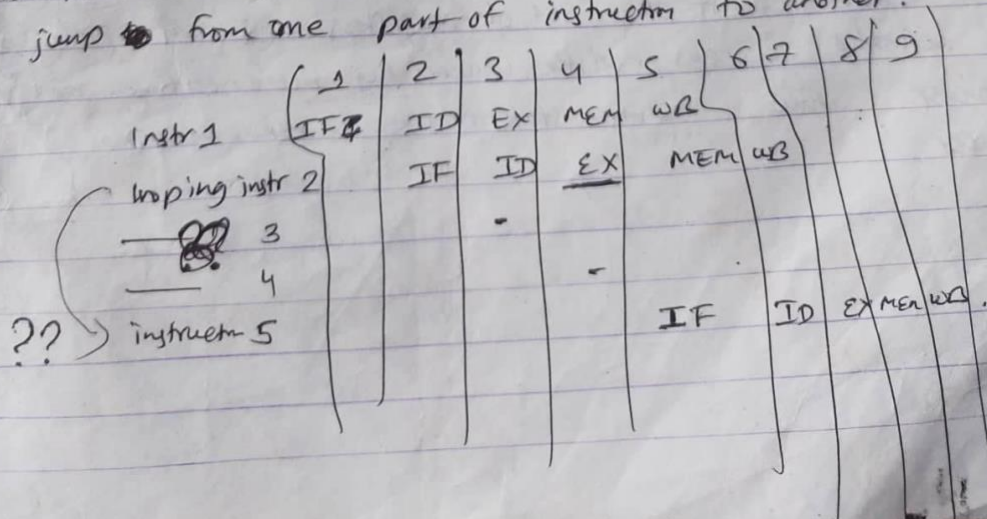 jump from one part of instructn to another.
1 2 3 4 5 6 7 8 9
Instr 1 IF ID EX MEM WB
looping instr 2 IF ID EX MEM WB
3 -
4 -
?? instructn 5 IF ID EX MEM WB .